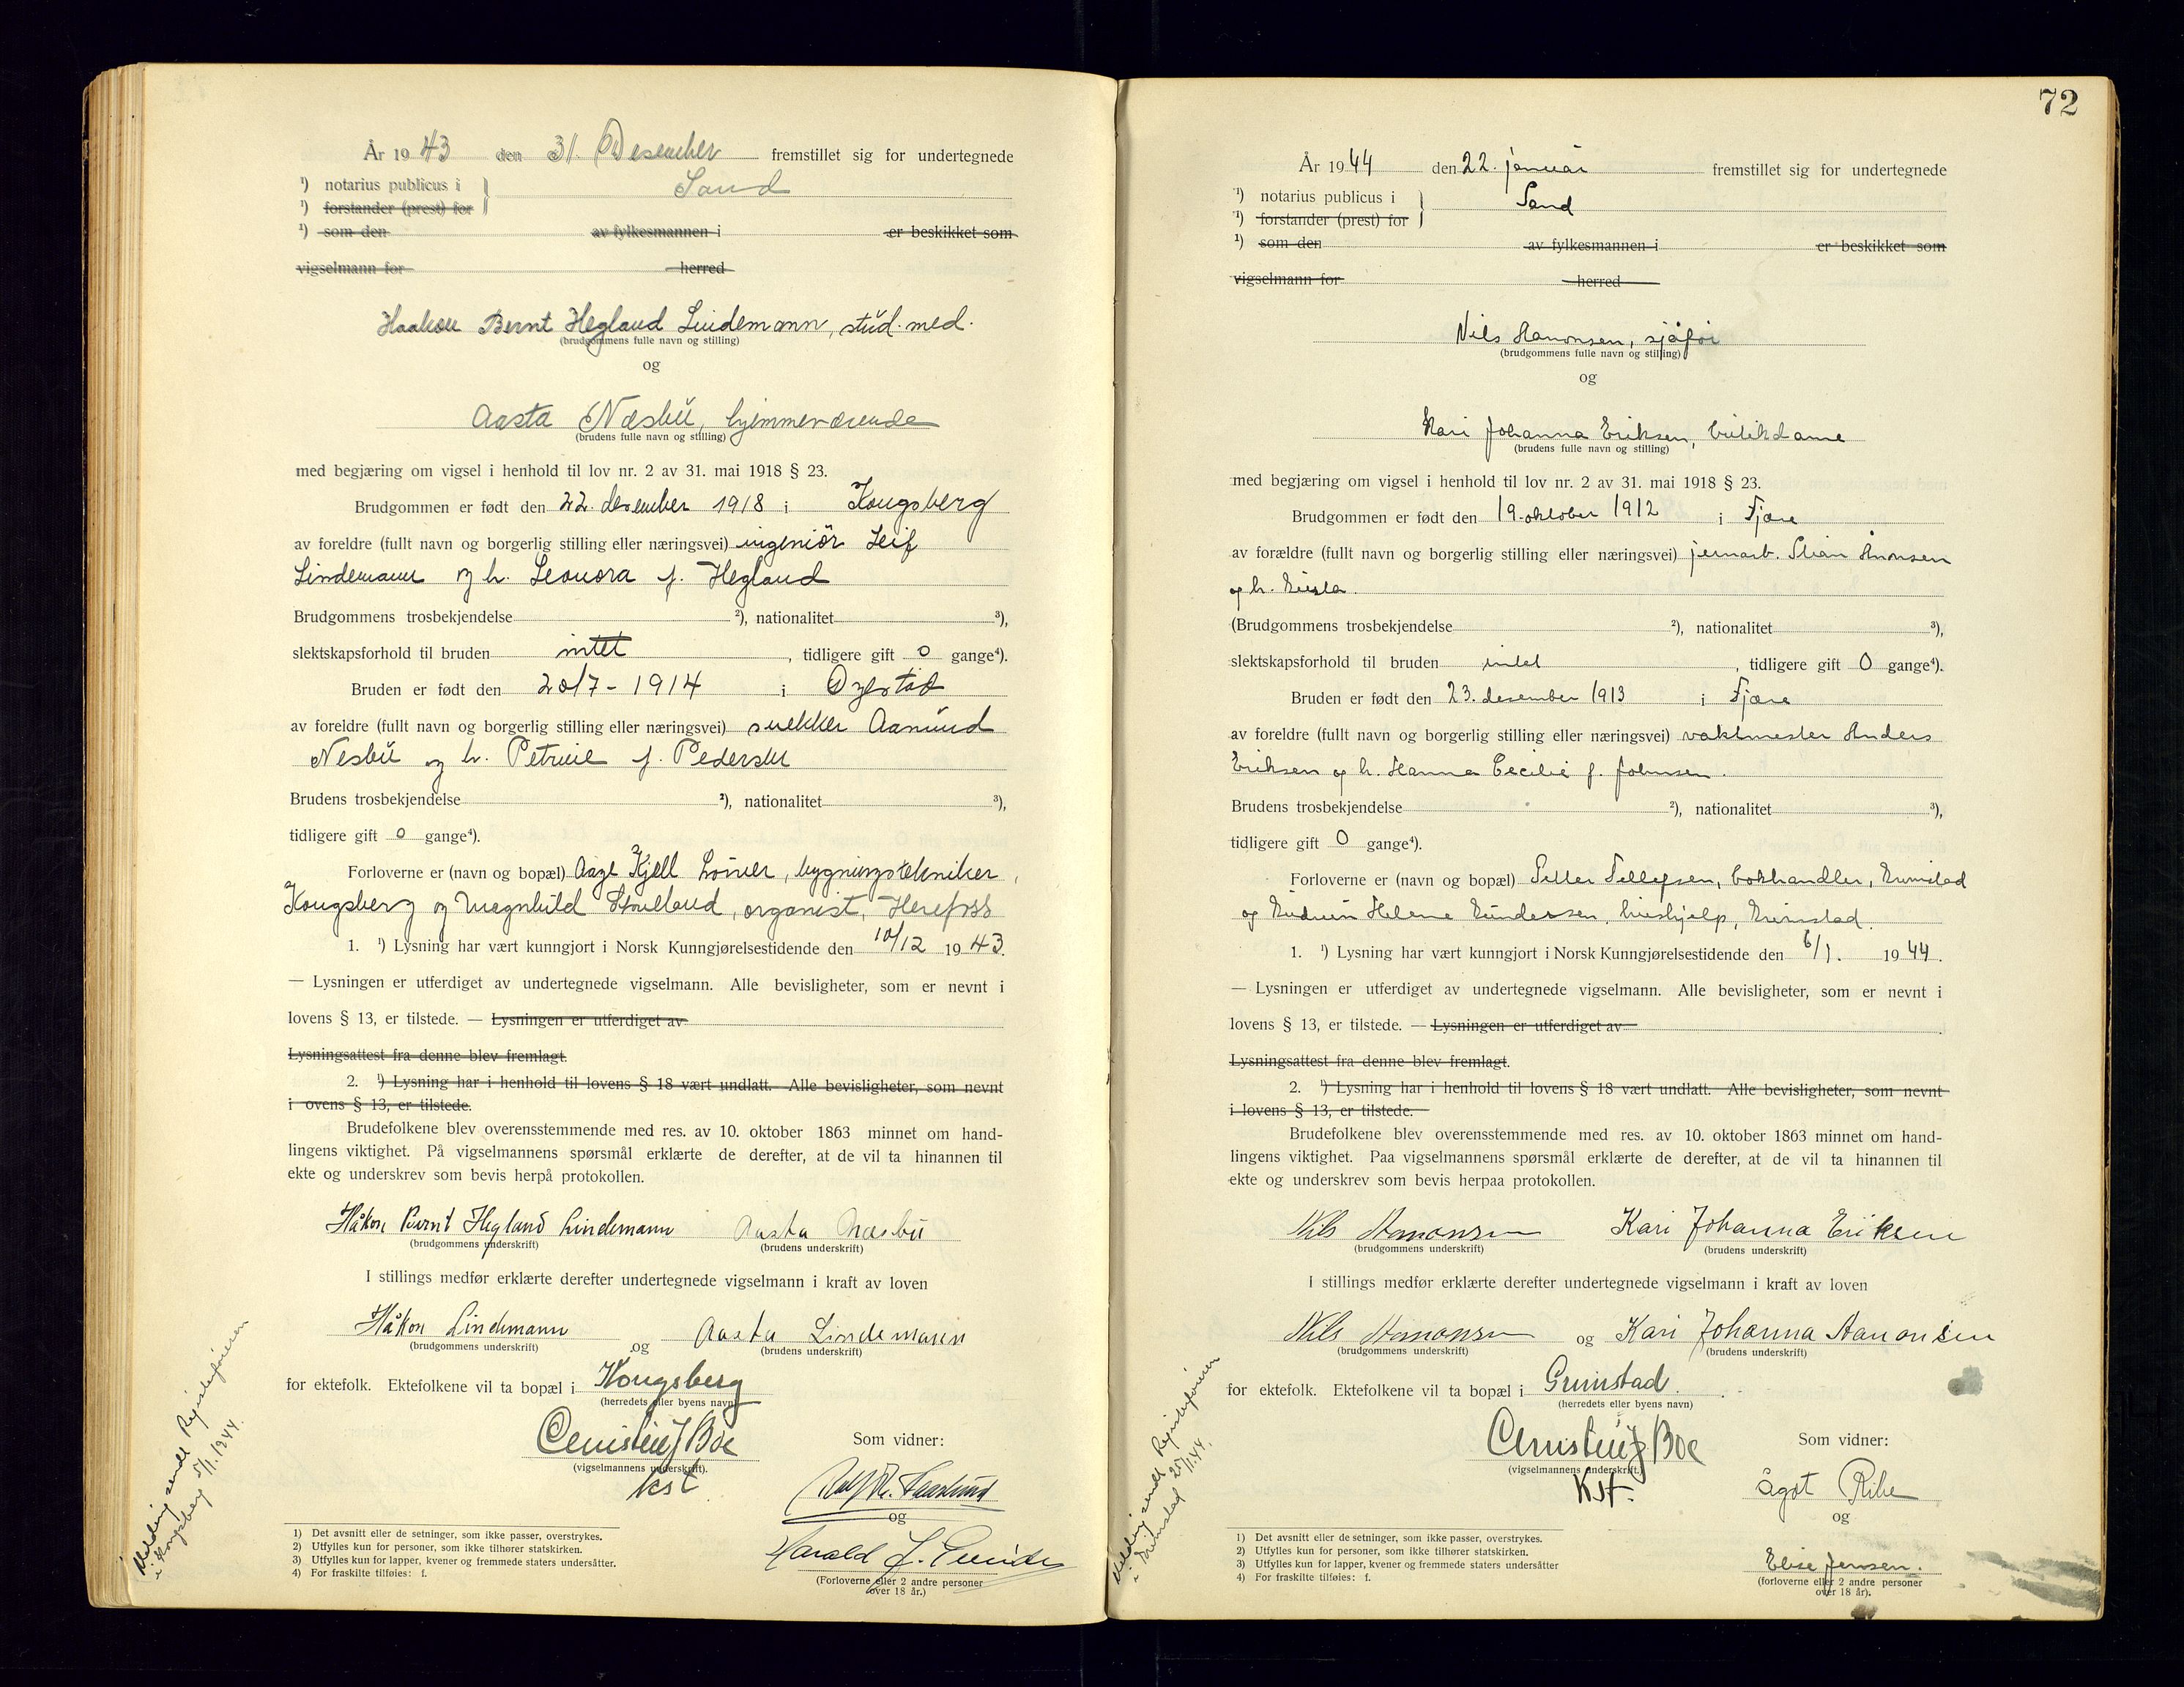 År 1943 den 31. Desember fremstillet sig for undertegnede
¹) notarius publicus i Sand
¹) forstander (prest) for
¹) som den av fylkesmannen i er beskikket som
vigselmann for herred
Haakon Bernt Hegland Lindemann, stud. med.
(brudgommens fulle navn og stilling)
og
Aasta Næsbü, hjemmeværende
(brudens fulle navn og stilling)
med begjæring om vigsel i henhold til lov nr. 2 av 31. mai 1918 § 23.
Brudgommen er født den 22. desember 1918 i Kongsberg
av foreldre (fullt navn og borgerlig stilling eller næringsvei) ingeniör Leif
Lindemann og h. Leonora f. Hegland
Brudgommens trosbekjendelse ²), nationalitet ³),
slektskapsforhold til bruden intet, tidligere gift 0 gange⁴).
Bruden er født den 20/7 - 1914 i Øyestad
av foreldre (fullt navn og borgerlig stilling eller næringsvei) snekker Aamund
Nesbü og h. Petrine f. Pedersen
Brudens trosbekjendelse ²), nationalitet ³),
tidligere gift 0 gange⁴).
Forloverne er (navn og bopæl) Aage Kjell bygningstekniker,
Kongsberg og Magnhild organist, Herefoss
1. ¹) Lysning har vært kunngjort i Norsk Kunngjørelsestidende den 10/12 1943.
— Lysningen er utferdiget av undertegnede vigselmann. Alle bevisligheter, som er nevnt i
lovens § 13, er tilstede. — Lysningen er utferdiget av
Lysningsattest fra denne blev fremlagt.
2. ¹) Lysning har i henhold til lovens § 18 vært undlatt. Alle bevisligheter, som nevnt
i ovens § 13, er tilstede.
Brudefolkene blev overensstemmende med res. av 10. oktober 1863 minnet om hand-
lingens viktighet. På vigselmannens spørsmål erklærte de derefter, at de vil ta hinannen til
ekte og underskrev som bevis herpå protokollen.
Håkon Bernt Hegland Lindemann Aasta Næsbü
(brudgommens underskrift) (brudens underskrift)
I stillings medfør erklærte derefter undertegnede vigselmann i kraft av loven
Håkon Lindemann og Aasta Lindemann
(brudgommens underskrift) (brudens underskrift)
for ektefolk. Ektefolkene vil ta bopæl i Kongsberg
(herredets eller byens navn)
Christen J Boe
(vigselmannens underskrift).
kst
Som vidner:
og
Harald J.
(Forloverne eller 2 andre personer
over 18 år.)
Melding sendt Registerføreren
i Kongsberg 5/1. 1944.
1) Det avsnitt eller de setninger, som ikke passer, overstrykes.
2) Utfylles kun for personer, som ikke tilhører statskirken.
3) Utfylles kun for lapper, kvener og fremmede staters undersåtter.
4) For fraskilte tilføies: f.
72
År 1944 den 22. januar fremstillet sig for undertegnede
¹) notarius publicus i Sand
¹) forstander (prest) for
¹) som den av fylkesmannen i er beskikket som
vigselmann for herred
Nils Aanonsen, sjåför
(brudgommens fulle navn og stilling)
og
Kari Johanna Eriksen, butikdame
(brudens fulle navn og stilling)
med begjæring om vigsel i henhold til lov nr. 2 av 31. mai 1918 § 23.
Brudgommen er født den 19. oktober 1912 i Fjære
av forældre (fullt navn og borgerlig stilling eller næringsvei) jernarb. Stian Anonsen
og h.
(Brudgommens trosbekjendelse ²), nationalitet ³),
slektskapsforhold til bruden intet, tidligere gift 0 gange⁴).
Bruden er født den 23. desember 1913 i Fjære
av foreldre (fullt navn og borgerlig stilling eller næringsvei) vaktmester Anders
Eriksen og h. Hanna Cecilie f. Johnsen.
Brudens trosbekjendelse ²), nationalitet ³),
tidligere gift 0 gange⁴).
Forloverne er (navn og bopæl) Tellef Tellefsen, bokhandler, Grimstad
og Gudrun Helene Gundersen, hushjelp, Grimstad.
1. ¹) Lysning har vært kunngjort i Norsk Kunngjørelsestidende den 6/1. 1944.
— Lysningen er utferdiget av undertegnede vigselmann. Alle bevisligheter, som er nevnt i
lovens § 13, er tilstede. — Lysningen er utferdiget av
Lysningsattest fra denne blev fremlagt.
2. ¹) Lysning har i henhold til lovens § 18 vært undlatt. Alle bevisligheter, som nevnt
i lovens § 13, er tilstede.
Brudefolkene blev overensstemmende med res. av 10. oktober 1863 minnet om hand-
lingens viktighet. Paa vigselmannens spørsmål erklærte de derefter, at de vil ta hinannen til
ekte og underskrev som bevis herpaa protokollen.
Nils Aanonsen Kari Johanna Eriksen
(brudgommens underskrift) (brudens underskrift)
I stillings medfør erklærte derefter undertegnede vigselmann i kraft av loven
Nils Aanonsen og Kari Johanna Aanonsen
(brudgommens underskrift) (brudens underskrift)
for ektefolk. Ektefolkene vil ta bopæl i Grimstad.
(herredets eller byens navn)
Christen J Boe
(vigselmannens underskrift.)
Kst.
Som vidner:
Ågot Ribe
og
Elise Jensen.
(forloverne eller 2 andre personer
over 18 år).
Melding sendt Registerføreren
i Grimstad 25/1. 44.
1) Det avsnitt eller de setninger, som ikke passer, overstrykes.
2) Utfylles kun for personer, som ikke tilhører statskirken.
3) Utfylles kun for lapper, kvener og fremmede staters undersåtter
4) For fraskilte tilføies: f.